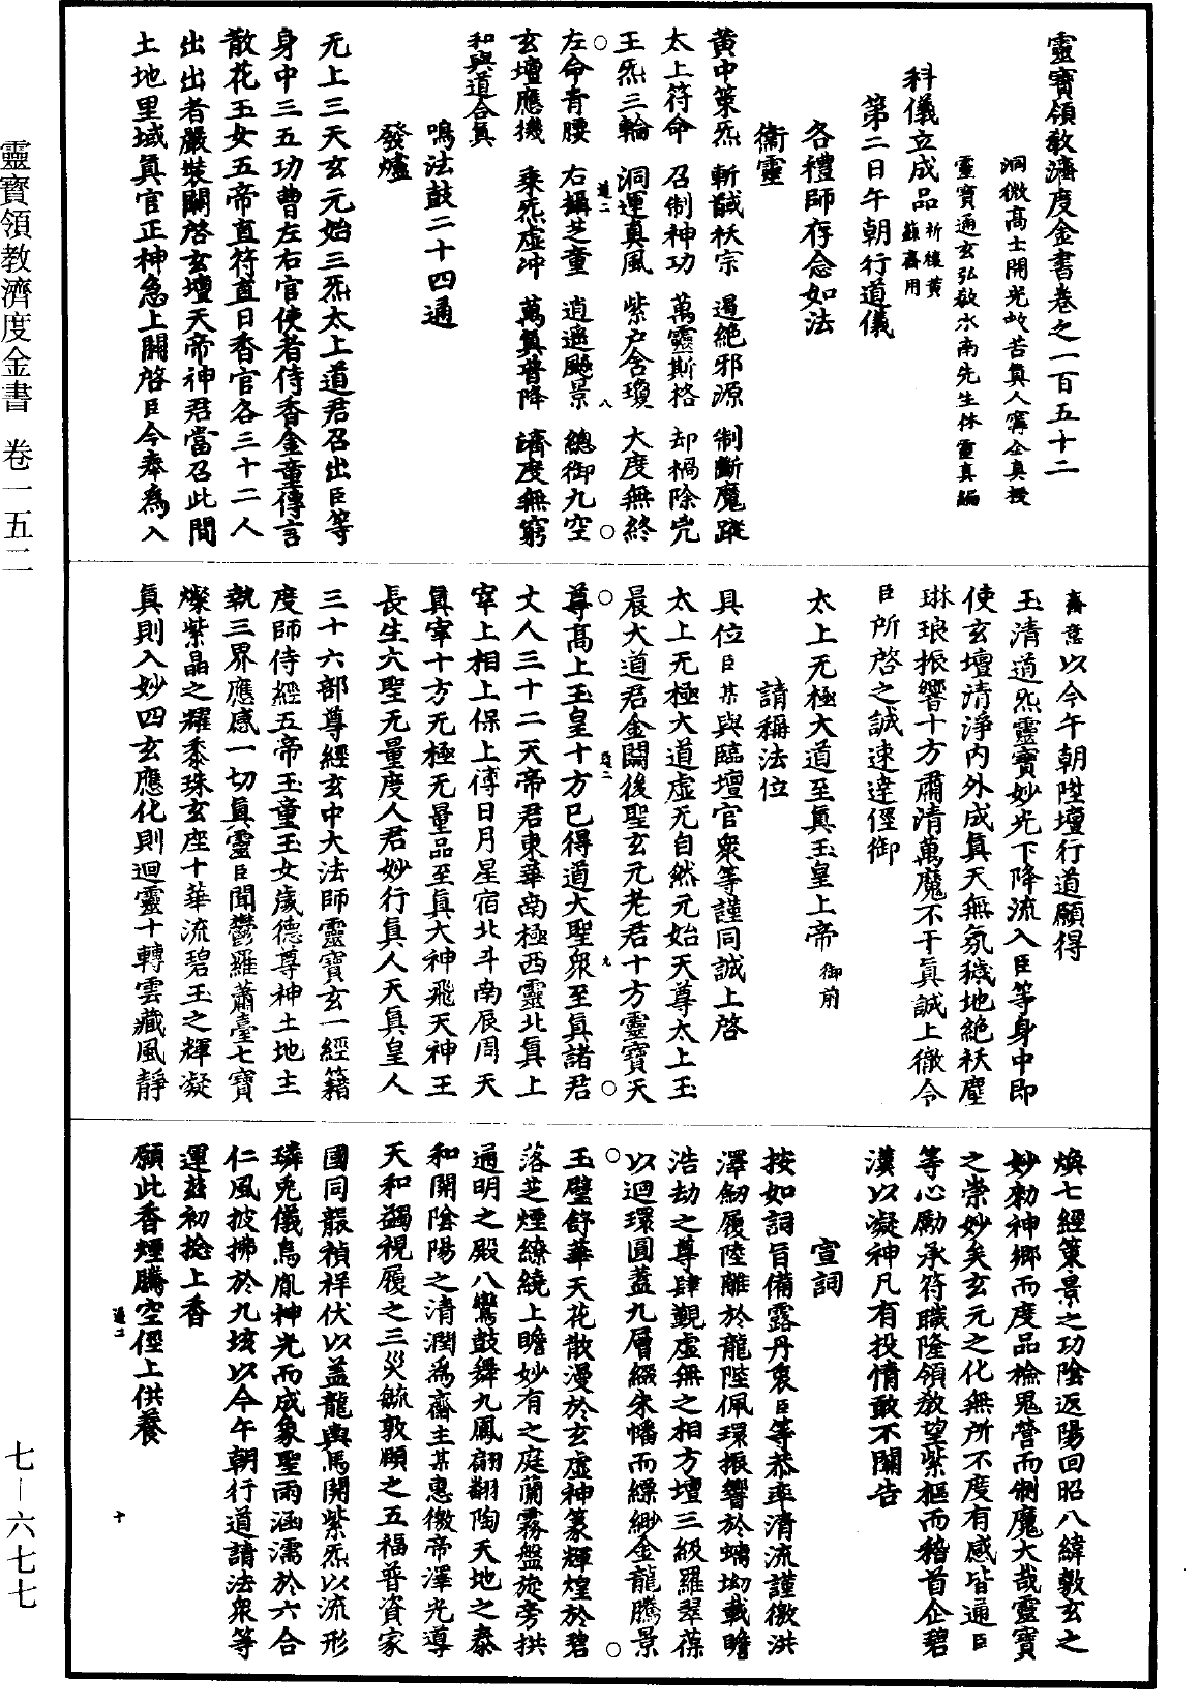 靈寶領教濟度金書卷之一百五十二
洞微高士開光救苦眞人寗全眞授
靈寶通玄弘敎水南先生林靈眞編
科儀立成品祈禳黄籙齋用
第二日午朝行道儀
各禮師存念如法
衞靈
黄中策炁 斬馘袄宗 遏絶邪源 制斷魔蹤
太上符命 召制神功 萬靈斯格 却禍除兇
王炁三輪 洞運真風 紫户含瓊 大度無終
左命青腰 右攝芝童 逍遥飈景 總御九空
玄壇應機 乘炁虚冲 萬眞普降 濟度無窮
和與道合眞
鳴法鼓二十四通
發爐
无上三天玄元始三炁太上道君召出臣等
身中三五功曹左右官使者侍香金童傳言
散花玉女五帝直符直日香官各三十二人
出出者嚴裝關啓玄壇天帝神君當召此間
土地里域眞官正神急上開啓臣今奉為入
齋意以今午朝陞壇行道願得
玉清道炁靈寶妙光下降流入臣等身中即
使玄壇清淨内外成眞天無氛穢地絶袄塵
琳琅振響十方肅清萬魔不干眞誠上徹令
臣所啓之誠速達徑御
太上无極大道至眞玉皇上帝御前
請稱法位
具位臣某與臨壇官衆等謹同誠上啓
太上无極大道虚无自然元始天尊太上玉
晨大道君金闕後聖玄元老君十方靈寶天
尊高上玉皇十方已得道大聖衆至眞諸君
丈人三十二天帝君東華南極西靈北眞上
宰上相上保上傅日月星宿北斗南辰周天
眞宰十方无極无量品至眞大神飛天神王
長生大聖无量度人君妙行眞人天眞皇人
三十六部尊經玄中大法師靈寶玄一經籍
度師侍經五帝玉童玉女歲德尊神土地主
執三界應感一切眞靈臣聞鬱羅蕭臺七寶
燦紫晶之耀黍珠玄座十華流碧玉之輝凝
眞則入妙四玄應化則迴靈十轉雲藏風靜
煥七經策景之功陰返陽回昭八緯敷玄之
妙勑神鄉而度品檢鬼營而制魔大哉靈寶
之崇妙矣玄元之化無所不度有感皆通臣
等心勵承符職隆領敎望紫樞而稽首企碧
漢以凝神凡有投情敢不關告
宣詞
按如詞旨備露丹衷臣等恭率清流謹徼洪
澤劒履陸離於龍陛佩環振響於螭坳載瞻
浩劫之尊肆覲虚無之相方壇三級羅翠葆
以迴環圓蓋九層綴朱幡而縹緲金龍騰景
玉璧舒華天花散漫於玄虚神篆輝煌於碧
落芝煙繚繞上瞻妙有之庭蘭霧盤旋旁拱
通明之殿八鸞鼓舞九鳳翩翻陶天地之泰
和開陰陽之清潤爲齋主某惠徼帝澤光導
天和蠲視履之三災毓敦頤之五福普資家
國同裖禎祥伏以盖龍輿馬開紫炁以流形
璘兎儀烏胤神光而成象聖雨涵濡於六合
仁風披拂於九垓以今午朝行道請法衆等
運茲初捻上香
願此香煙騰空徑上供養
道二
八
道二
九
道二
十
靈寶領教濟度金書 卷一五二
七—六七七